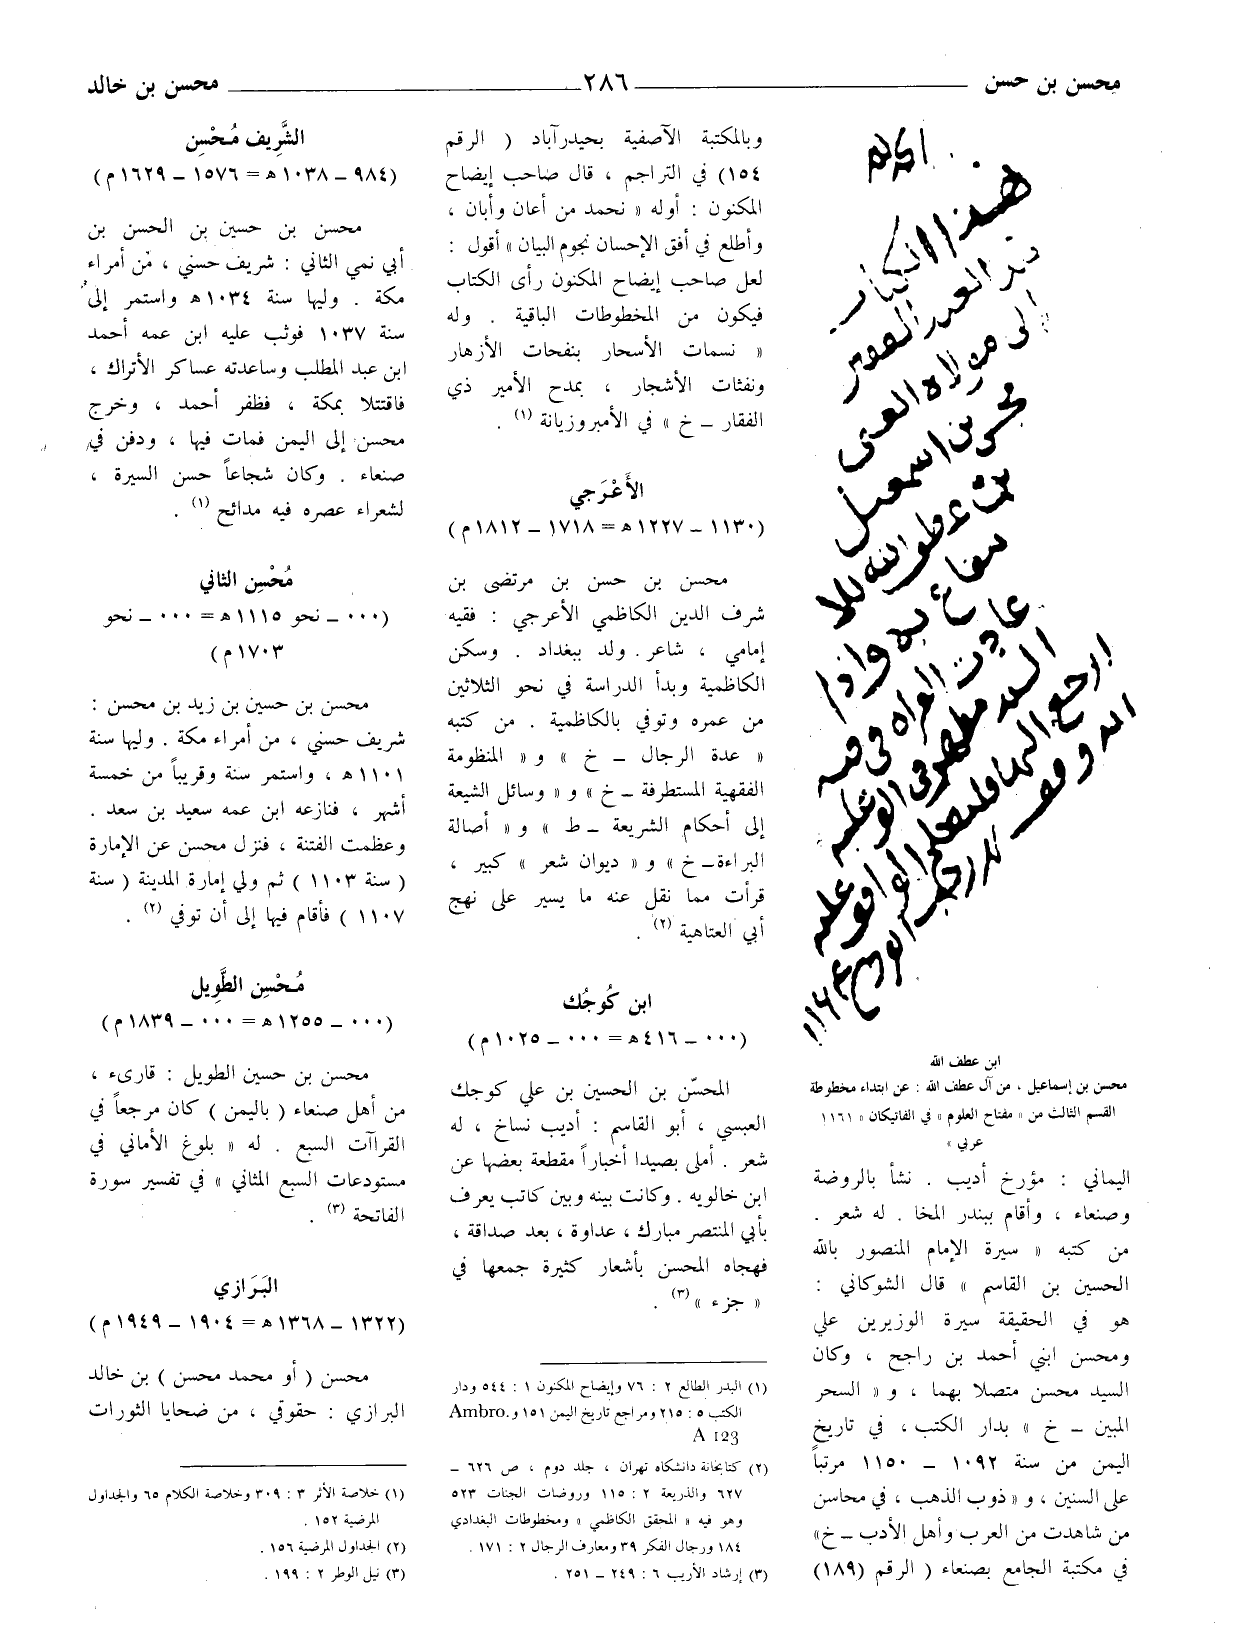 محسن بن حسن
٢٨٦
محسن بن خالد
هذا الكتاب
محسن بن اسمعيل
ابن عطف الله
محسن بن إسماعيل ، من آل عطف الله : عن ابتداء مخطوطة
القسم الثالث من « مفتاح العلوم » في الفاتيكان « ١١٦١
عربي »
اليماني : مؤرخ أديب . نشأ بالروضة
وصنعاء ، وأقام ببندر المخا . له شعر .
من كتبه « سيرة الإمام المنصور بالله
الحسين بن القاسم » قال الشوكاني :
هو في الحقيقة سيرة الوزيرين علي
ومحسن ابني أحمد بن راجح ، وكان
السيد محسن متصلا بهما ، و « السحر
المبين ــ خ » بدار الكتب ، في تاريخ
اليمن من سنة ١٠٩٢ ــ ١١٥٠ مرتباً
على السنين ، و « ذوب الذهب ، في محاسن
من شاهدت من العرب وأهل الأدب ــ خ»
في مكتبة الجامع بصنعاء ( الرقم (١٨٩)
وبالمكتبة الآصفية بحيدرآباد ( الرقم
١٥٤) في التراجم ، قال صاحب إيضاح
المكنون : أوله « نحمد من أعان وأبان ،
وأطلع في أفق الإحسان نجوم البيان » أقول :
لعل صاحب إيضاح المكنون رأى الكتاب
فيكون من المخطوطات الباقية . وله
« نسمات الأسحار بنفحات الأزهار
ونفثات الأشجار ، بمدح الأمير ذي
الفقار ــ خ » في الأمبروزيانة (١) .
الأَعْرَجي
(١١٣٠ ــ ١٢٢٧ هـ = ١٧١٨ ــ ١٨١٢ م)
محسن بن حسن بن مرتضى بن
شرف الدين الكاظمي الأعرجي : فقيه
إمامي ، شاعر . ولد ببغداد . وسكن
الكاظمية وبدأ الدراسة في نحو الثلاثين
من عمره وتوفي بالكاظمية . من كتبه
« عدة الرجال ــ خ » و « المنظومة
الفقهية المستطرفة ــ خ » و « وسائل الشيعة
إلى أحكام الشريعة ــ ط » و « أصالة
البراءة ــ خ » و « ديوان شعر » كبير ،
قرأت مما نقل عنه ما يسير على نهج
أبي العتاهية (٢) .
ابن كُوجُك
(٠٠٠ ــ ٤١٦ هـ = ٠٠٠ ــ ١٠٢٥ م)
المحسّن بن الحسين بن علي كوجك
العبسي ، أبو القاسم : أديب نساخ ، له
شعر . أملى بصيدا أخباراً مقطعة بعضها عن
ابن خالويه . وكانت بينه وبين كاتب يعرف
بأبي المنتصر مبارك ، عداوة ، بعد صداقة ،
فهجاه المحسن بأشعار كثيرة جمعها في
« جزء » (٣) .
(١) البدر الطالع ٢ : ٧٦ وإيضاح المكنون ١ : ٥٤٤ ودار
الكتب ٥ : ٢١٥ ومراجع تاريخ اليمن ١٥١ و Ambro.
A 123
(٢) كتابخانة دانشكاه تهران ، جلد دوم ، ص ٦٢٦ ــ
٦٢٧ والذريعة ٢ : ١١٥ وروضات الجنات ٥٢٣
وهو فيه « المحقق الكاظمي » ومخطوطات البغدادي
١٨٤ ورجال الفكر ٣٩ ومعارف الرجال ٢ : ١٧١ .
(٣) إرشاد الأريب ٦ : ٢٤٩ ــ ٢٥١ .
الشَّرِيف مُحْسِن
(٩٨٤ ــ ١٠٣٨ هـ = ١٥٧٦ ــ ١٦٢٩ م)
محسن بن حسين بن الحسن بن
أبي نمي الثاني : شريف حسني ، من أمراء
مكة . وليها سنة ١٠٣٤ هـ واستمر إلى
سنة ١٠٣٧ فوثب عليه ابن عمه أحمد
ابن عبد المطلب وساعدته عساكر الأتراك ،
فاقتتلا بمكة ، فظفر أحمد ، وخرج
محسن إلى اليمن فمات فيها ، ودفن في
صنعاء . وكان شجاعاً حسن السيرة ،
لشعراء عصره فيه مدائح (١) .
مُحْسِن الثاني
(٠٠٠ ــ نحو ١١١٥ هـ = ٠٠٠ ــ نحو
١٧٠٣ م)
محسن بن حسين بن زيد بن محسن :
شريف حسني ، من أمراء مكة . وليها سنة
١١٠١ هـ ، واستمر سنة وقريباً من خمسة
أشهر ، فنازعه ابن عمه سعيد بن سعد .
وعظمت الفتنة ، فنزل محسن عن الإمارة
( سنة ١١٠٣ ) ثم ولي إمارة المدينة ( سنة
١١٠٧ ) فأقام فيها إلى أن توفي (٢) .
مُحْسِن الطَّوِيل
(٠٠٠ ــ ١٢٥٥ هـ = ٠٠٠ ــ ١٨٣٩ م)
محسن بن حسين الطويل : قارىء ،
من أهل صنعاء ( باليمن ) كان مرجعاً في
القراآت السبع . له « بلوغ الأماني في
مستودعات السبع المثاني » في تفسير سورة
الفاتحة (٣) .
البَرَازي
(١٣٢٢ ــ ١٣٦٨ هـ = ١٩٠٤ ــ ١٩٤٩ م)
محسن ( أو محمد محسن ) بن خالد
البرازي : حقوقي ، من ضحايا الثورات
(١) خلاصة الأثر ٣ : ٣٠٩ وخلاصة الكلام ٦٥ والجداول
المرضية ١٥٢ .
(٢) الجداول المرضية ١٥٦ .
(٣) نيل الوطر ٢ : ١٩٩ .